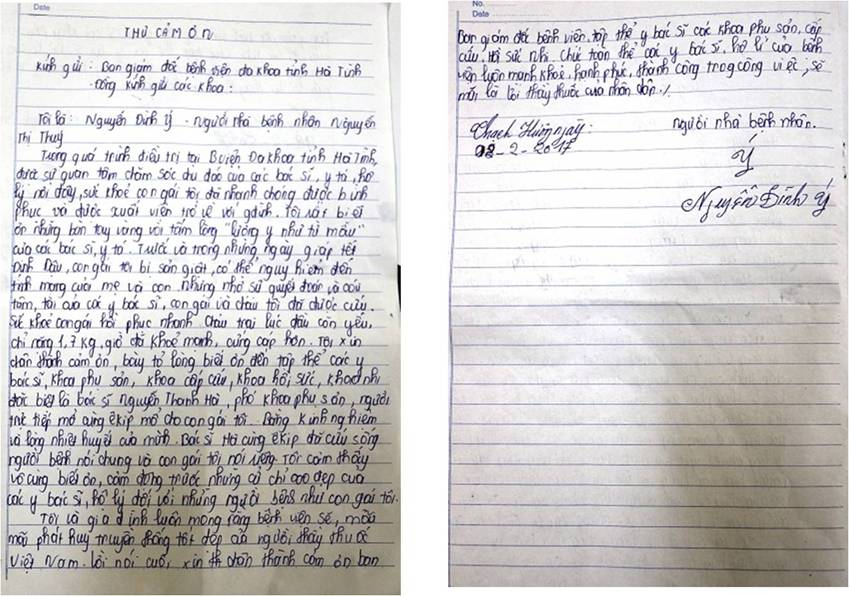 Date
THƯ CẢM ƠN
Kính gửi: Ban giám đốc bệnh viện đa khoa tỉnh Hà Tĩnh
Đồng kính gửi các khoa:
Tôi là: Nguyễn Đình Ý - người nhà bệnh nhân Nguyễn
Thị Thuý
Trong quá trình điều trị tại B viện Đa khoa tỉnh Hà Tĩnh,
được sự quan tâm chăm sóc chu đáo của các bác sĩ, y tá, hộ
lý nơi đây, sức khoẻ con gái tôi đã nhanh chóng được bình
phục và được xuất viện trở về với gđình. Tôi rất biết
ơn những bàn tay vàng với tấm lòng "lương y như từ mẫu"
của các bác sĩ, y tá. Trước và trong những ngày giáp tết
Đinh Dậu, con gái tôi bị sản giật, có thể nguy hiểm đến
tính mạng của mẹ và con nhưng nhờ sự quyết đoán và cái
tâm, tài của các y bác sĩ, con gái và cháu tôi đã được cứu.
Sức khoẻ con gái hồi phục nhanh. Cháu trai lúc đầu còn yếu,
chỉ nặng 1,7 kg, giờ đã khoẻ mạnh, cứng cáp hơn. Tôi xin
chân thành cảm ơn, bày tỏ lòng biết ơn đến tập thể các y
bác sĩ, khoa phụ sản, khoa cấp cứu, khoa hồi sức, khoa nhi
đặc biệt là bác sĩ Nguyễn Thanh Hà, phó khoa phụ sản, người
trực tiếp mổ cùng êkíp mổ cho con gái tôi. Bằng kinh nghiệm
và lòng nhiệt huyết của mình. Bác sĩ Hà cùng êkíp đã cứu sống
người bệnh nói chung và con gái tôi nói riêng. Tôi cảm thấy
vô cùng biết ơn, cảm động trước những cử chỉ cao đẹp của
các y bác sĩ, hộ lý đối với những người bệnh như con gái tôi.
Tôi và gia đình luôn mong rằng bệnh viện sẽ, mãi
mãi phát huy truyền thống tốt đẹp của người thầy thuốc
Việt Nam. Lời nói cuối, xin th chân thành cảm ơn ban
No.
Date
Ban giám đốc bệnh viện, tập thể y bác sĩ các khoa phụ sản, cấp
cứu, Hồi sức nhi. Chúc toàn thể các y bác sĩ, hộ lí của bệnh
viện luôn mạnh khoẻ, hạnh phúc, thành công trong công việc, sẽ
mãi là lời thầy thuốc của nhân dân./.
Thạch Hưng ngày:
08-2-2017
người nhà bệnh nhân.
Ý
Nguyễn Đình Ý